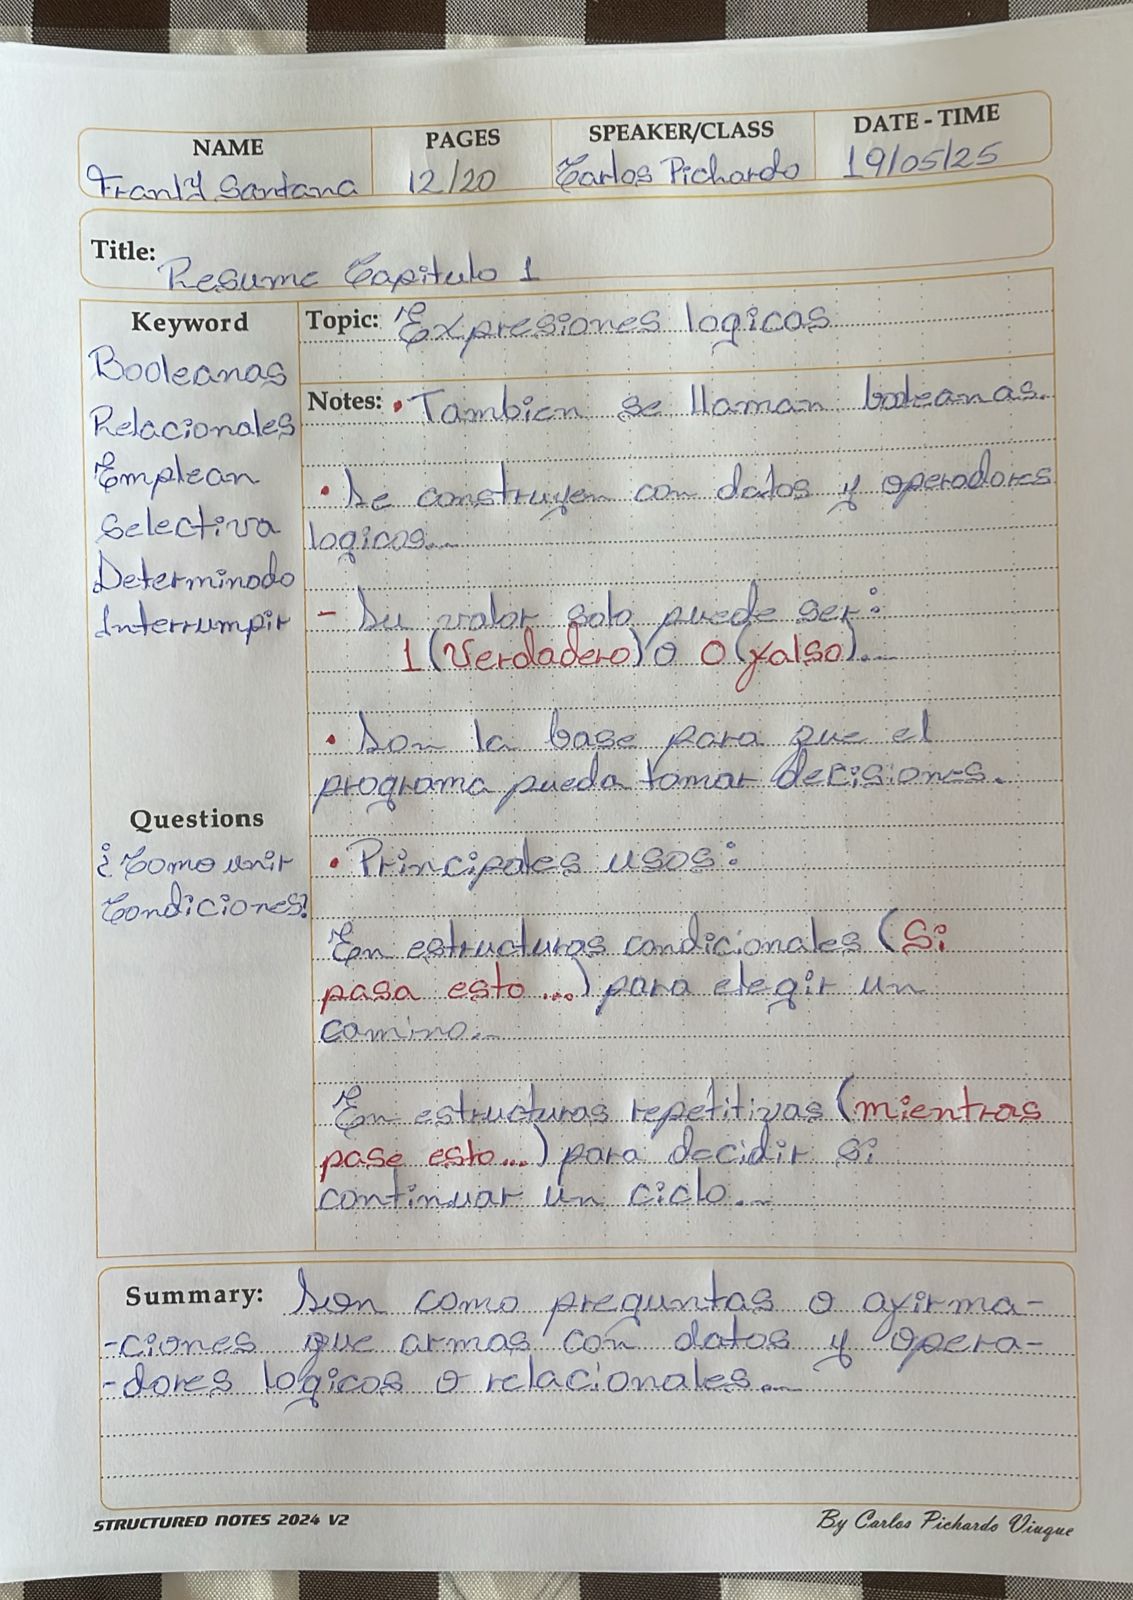 NAME PAGES SPEAKER/CLASS DATE - TIME
Franly Santana 12/20 Carlos Pichardo 19/05/25
Title: Resume Capitulo 1
Keyword
Booleanas
Relacionales
Emplean
Selectiva
Determinodo
Interrumpir
Questions
¿Como unir
Condiciones?
Topic: Expresiones logicas
Notes: • Tambien se llaman booleanas.
• Se construyen con datos y operadores
logicos...
- Su valor solo puede ser:
1 (Verdadero) o 0 (falso)...
• Son la base para que el
programa pueda tomar decisiones.
• Principales usos:
En estructuras condicionales (Si
pasa esto ...) para elegir un
camino...
En estructuras repetitivas (mientras
pase esto...) para decidir si
continuar un ciclo...
Summary: Son como preguntas o afirma-
-ciones que armas con datos y opera-
-dores logicos o relacionales...
STRUCTURED NOTES 2024 V2
By Carlos Pichardo Viuque